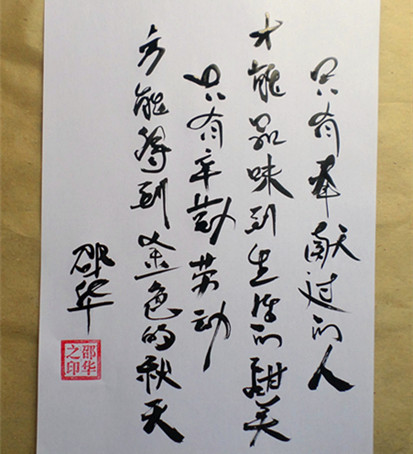 只有奉献过的人
才能品味到生活的甜美
只有辛勤劳动
方能得到金色的秋天
邵华
邵华之印